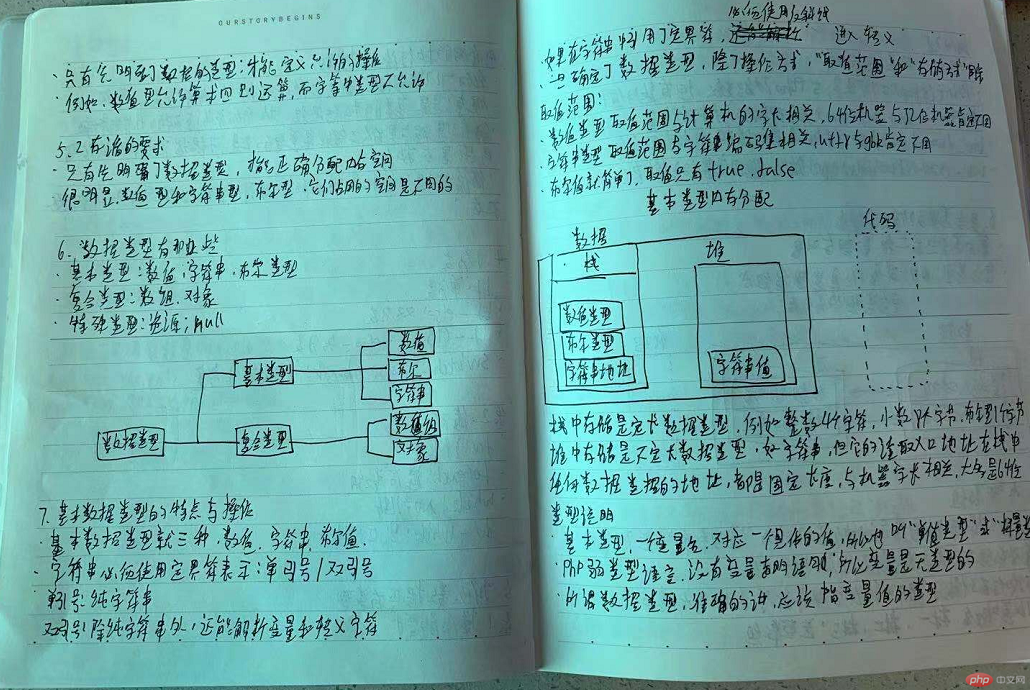 OURSTORYBEGINS
只有先明确了数据的类型,才能定义允许的操作
例如,数值型允许算术四则运算,而字符串类型不允许
5.2 存储的要求
只有先明确了数据类型,才能正确分配内存空间
很明显,数值型和字符串型,布尔型,它们占用的空间是不同的
6. 数据类型有那些
· 基本类型:数值,字符串,布尔类型
· 复合类型:数组,对象
· 特殊类型:资源,null
数据类型
基本类型
数值
布尔
字符串
复合类型
数值组
对象
7. 基本数据类型的特点与操作
· 基本数据类型就三种,数值,字符串,布尔值.
· 字符串必须使用定界符表示:单引号/双引号
单引号:纯字符串
双引号:除纯字符串外,还能解析变量和转义字符
必须使用反斜线
如果在字符串中用了定界符, 进入转义
一旦确定了数据类型,除了操作方式,"取值范围"和"存储方式"
取值范围:
· 数值类型 取值范围与计算机的字长相关,64位机器与32位机器肯定不同
· 字符串类型 取值范围与字符串编码集相关,utf8与gbk肯定不同
· 布尔值就简单了,取值只有true,false
基本类型内存分配
数据
栈
数值类型
布尔类型
字符串地址
堆
字符串值
代码
栈中存储是定长数据类型,例如整数4个字符,小数8个字节,布尔型1个字节
堆中存储是不定长数据类型,如字符串,但它的读取入口地址在栈中
任何数据类型的地址,都是固定长度,与机器字长相关,大多是64位
类型说明
· 基本类型,一个变量名,对应一个具体的值,所以也叫"单值类型"或"标量
· php弱类型语言,没有变量声明语句,所以变量是无类型的
· 所谓数据类型,准确的讲,应该指变量值的类型
php 中文网